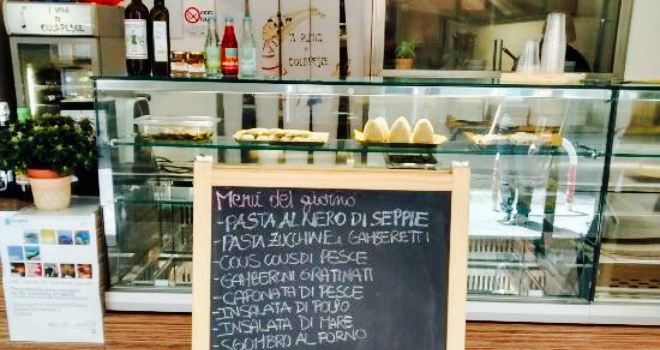 I VINI
DI
COLAPESCE
IL PUNTO
DI
COLAPESCE
Menù del giorno
-PASTA AL NERO DI SEPPIE
-PASTA ZUCCHINE e GAMBERETTI
-COUS COUS DI PESCE
-GAMBERONI GRATINATI
-CAPONATA DI PESCE
-INSALATA DI POLPO
-INSALATA DI MARE
-SGOMBRO AL FORNO